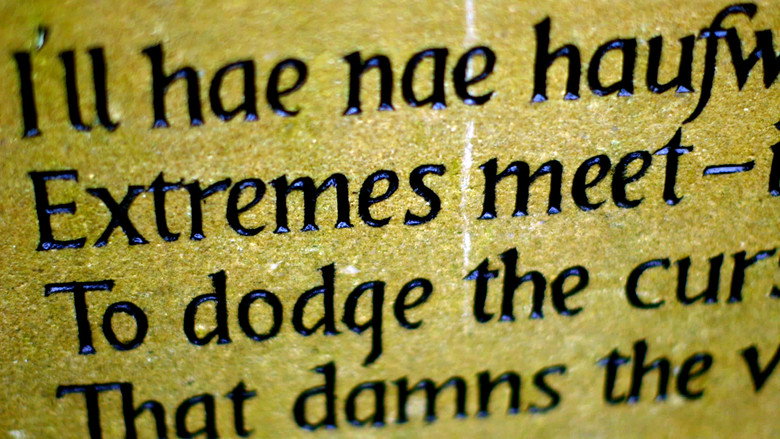 I'll hae nae haufw
Extremes meet – 
To dodge the curs
That damns the v